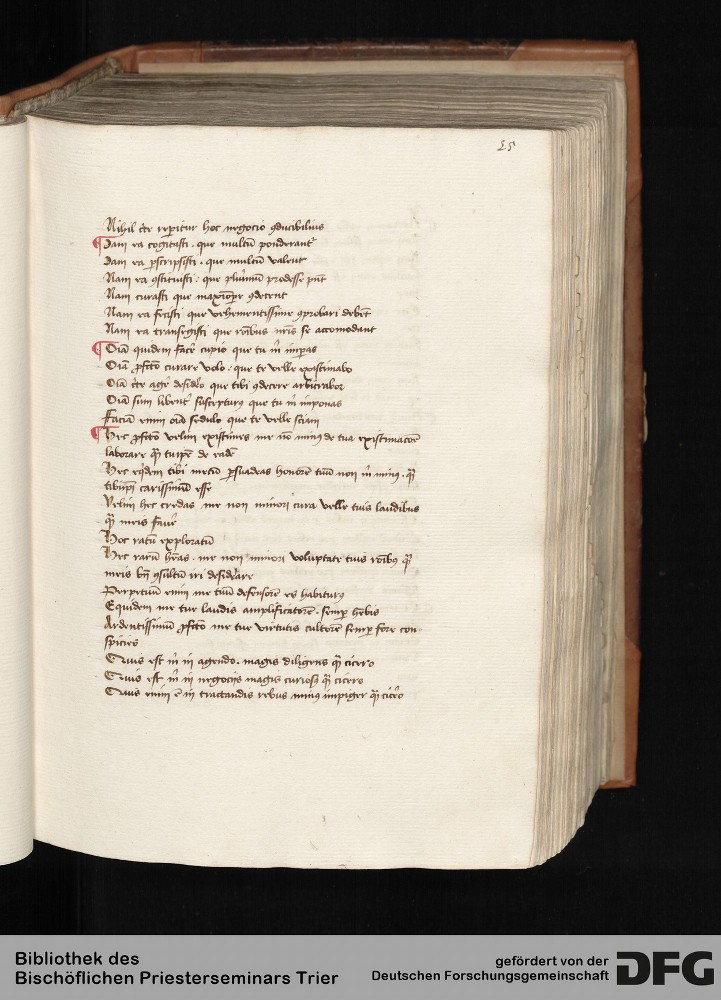 25
Nihil c̄te rep̄itur hoc negocio ꝯducibilius
Nam ea cogitasti · que multū ponderant
Nam ea p̄scripsisti · que multū valent
Nam ea ꝯstituisti · que plurimū prodesse pn̄t
Nam curasti que maxīope ꝯdecent
Nam ea fecisti que vehementissime ꝯprobari debēt
Nam ea transegisti que rōibus nr̄is se accomodant
Oīa quidem facē cupio que tu m̄ imperas
Oīa ꝓfcto curare volo · que te velle existimabo
Oīa c̄te agē desidēo que tibi ꝯdecere arbitrabor
Oīa sum libent suscepturus que tu m̄ imponas
Faciā enim oīa sedulo que te velle sciam
Hec ꝓfcto velim existimes me nō minus de tua existimacōe
laborare q̄ turpe de eadē
Hec eqdem tibi metū p̄suadeas honorē tuū non m̄ minus · qm̄
carissimū esse
Velim hec credas me non minori cura velle tuis laudibus
qm̄ meis favē
Hoc ratū exploratū
Hec ratū hēas · me non minori voluptate tuis rōibus qm̄
meis bn̄ ꝯsultū iri desidērare
Perpetuū enim me tuū defensorē es habiturus
Equidem me tue laudis amplificatorē · semp hēbis
Ardentissimū ꝓfcto me tue virtutis cultorē semp fore con-
spicies
Quis est m̄ in agendo · magis diligens qm̄ cicero
Quis est m̄ in negocijs magis curiosus qm̄ cicero
Quis enim ē in tractandis rebus minus impiger qm̄ cicēo
Bibliothek des
Bischöflichen Priesterseminars Trier
gefördert von der
Deutschen Forschungsgemeinschaft
DFG